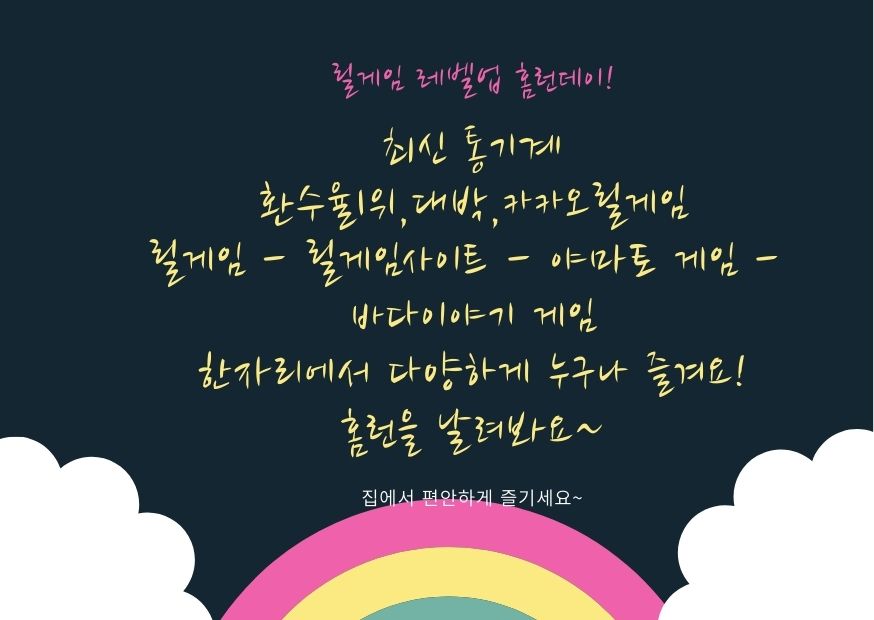 릴게임 레벨업 홈런데이!
최신 통기계
환수율1위,대박,카카오릴게임
릴게임 - 릴게임사이트 - 야마토 게임 -
바다이야기 게임
한자리에서 다양하게 누구나 즐겨요!
홈런을 날려봐요~
집에서 편안하게 즐기세요~